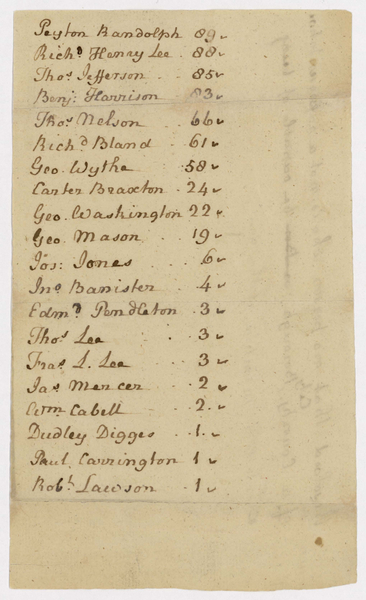 Peyton Randolph 89
Richd. Henry Lee . 88
Thos. Jefferson . . 85
Benj: Harrison . 83
Thos. Nelson . . 66
Richd. Bland . . 61
Geo. Wythe . . 58
Carter Braxton . 24
Geo. Washington 22
Geo. Mason . . 19
Jos: Jones . . 6
Jno. Banister . . 4
Edmd. Pendleton . 3
Thos. Lee . . 3
Fras. L. Lee . . 3
Jas. Mercer . . 2
Wm. Cabell . . 2
Dudley Digges . . 1
Paul Carrington 1
Robt. Lawson . 1